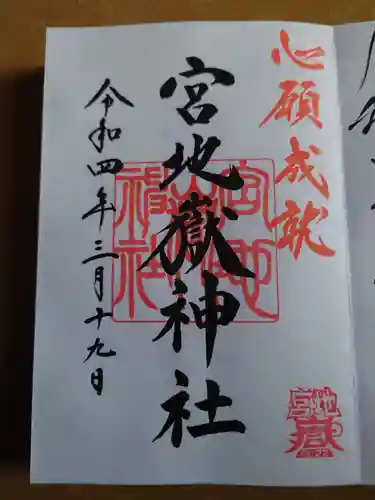 心願成就
宮地嶽神社
令和四年三月十九日
宮地
嶽